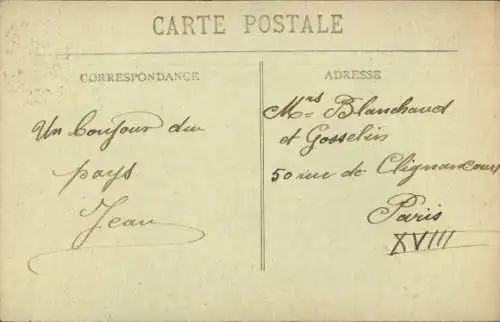 CARTE POSTALE
CORRESPONDANCE
Un bonjour du
pays
Jean
ADRESSE
Mrs Blanchaud
et Gosselin
50 rue de Clignancourt
Paris
XVIII